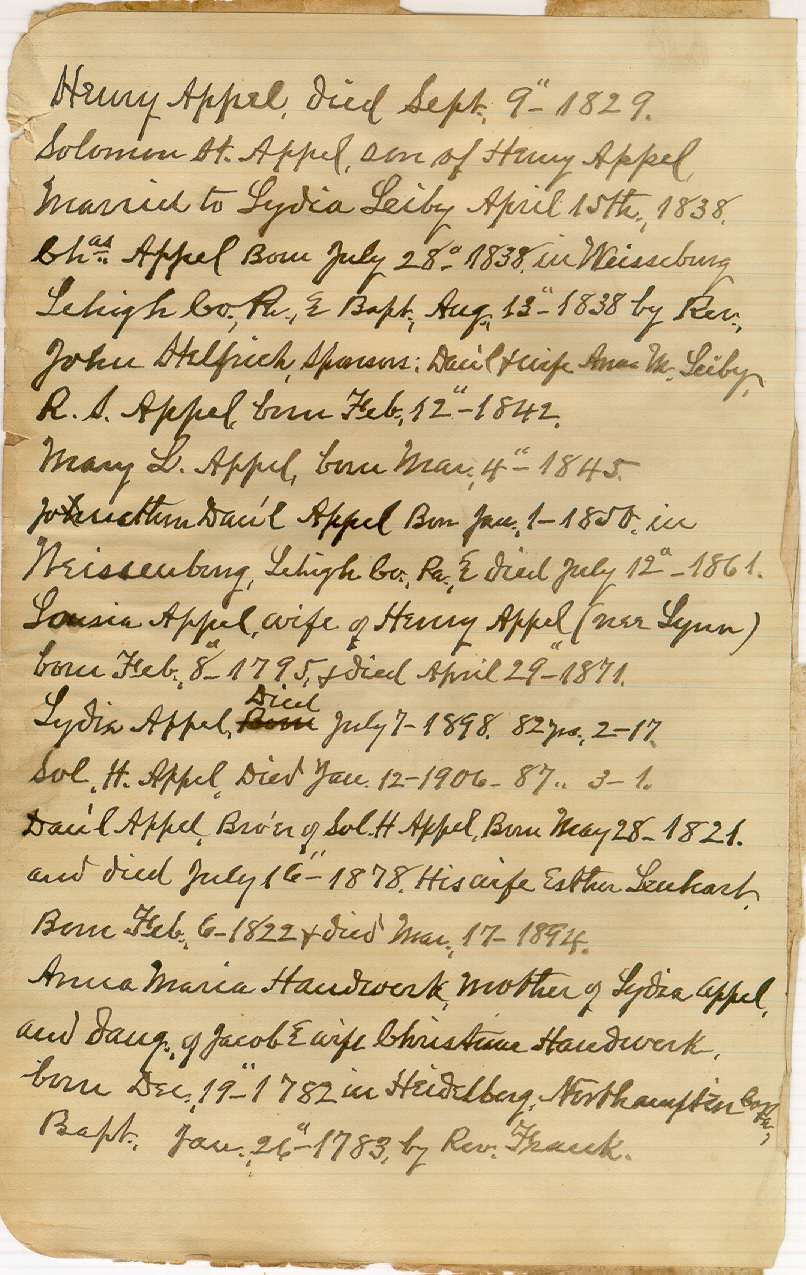 Henry Appel, died Sept. 9" - 1829.
Solomon H. Appel, son of Henry Appel,
Married to Lydia Leiby April 15th, 1838.
Chas. Appel Born July 28" 1838, in Weissenburg
Lehigh Co., Pa., & Bapt., Aug. 13" - 1838 by Rev.,
John Helfrich, Sponsors: Dan'l & wife Anna M. Leiby,
R. S. Appel, born Feb., 12" - 1842.
Mary L. Appel, born Mar., 4" - 1845.
Dan'l Appel Born Jan., 1 - 1850. in
Weissenburg, Lehigh Co., Pa., & died July 12" - 1861.
Lousia Appel, wife of Henry Appel (nee Lynn)
born Feb. 8" - 1795, & died April 29" - 1871.
Lydia Appel, Born Died July 7 - 1898. 82 yrs., 2 - 17.
Sol. H. Appel, Died Jan. 12 - 1906 - 87.. 3 - 1.
Dan'l Appel, Bro'er of Sol. H Appel, Born May 28 - 1821.
and died July 16" - 1878. His wife Esther Lenhart,
Born Feb., 6 - 1822 & died Mar., 17 - 1894.
Anna Maria Handwerk, Mother of Lydia Appel,
and Daug., of Jacob & wife Christine Handwerk,
born Dec., 19" - 1782 in Heidelberg, Northampton Co., Pa.,
Bapt., Jan., 26" - 1783, by Rev. Frank.